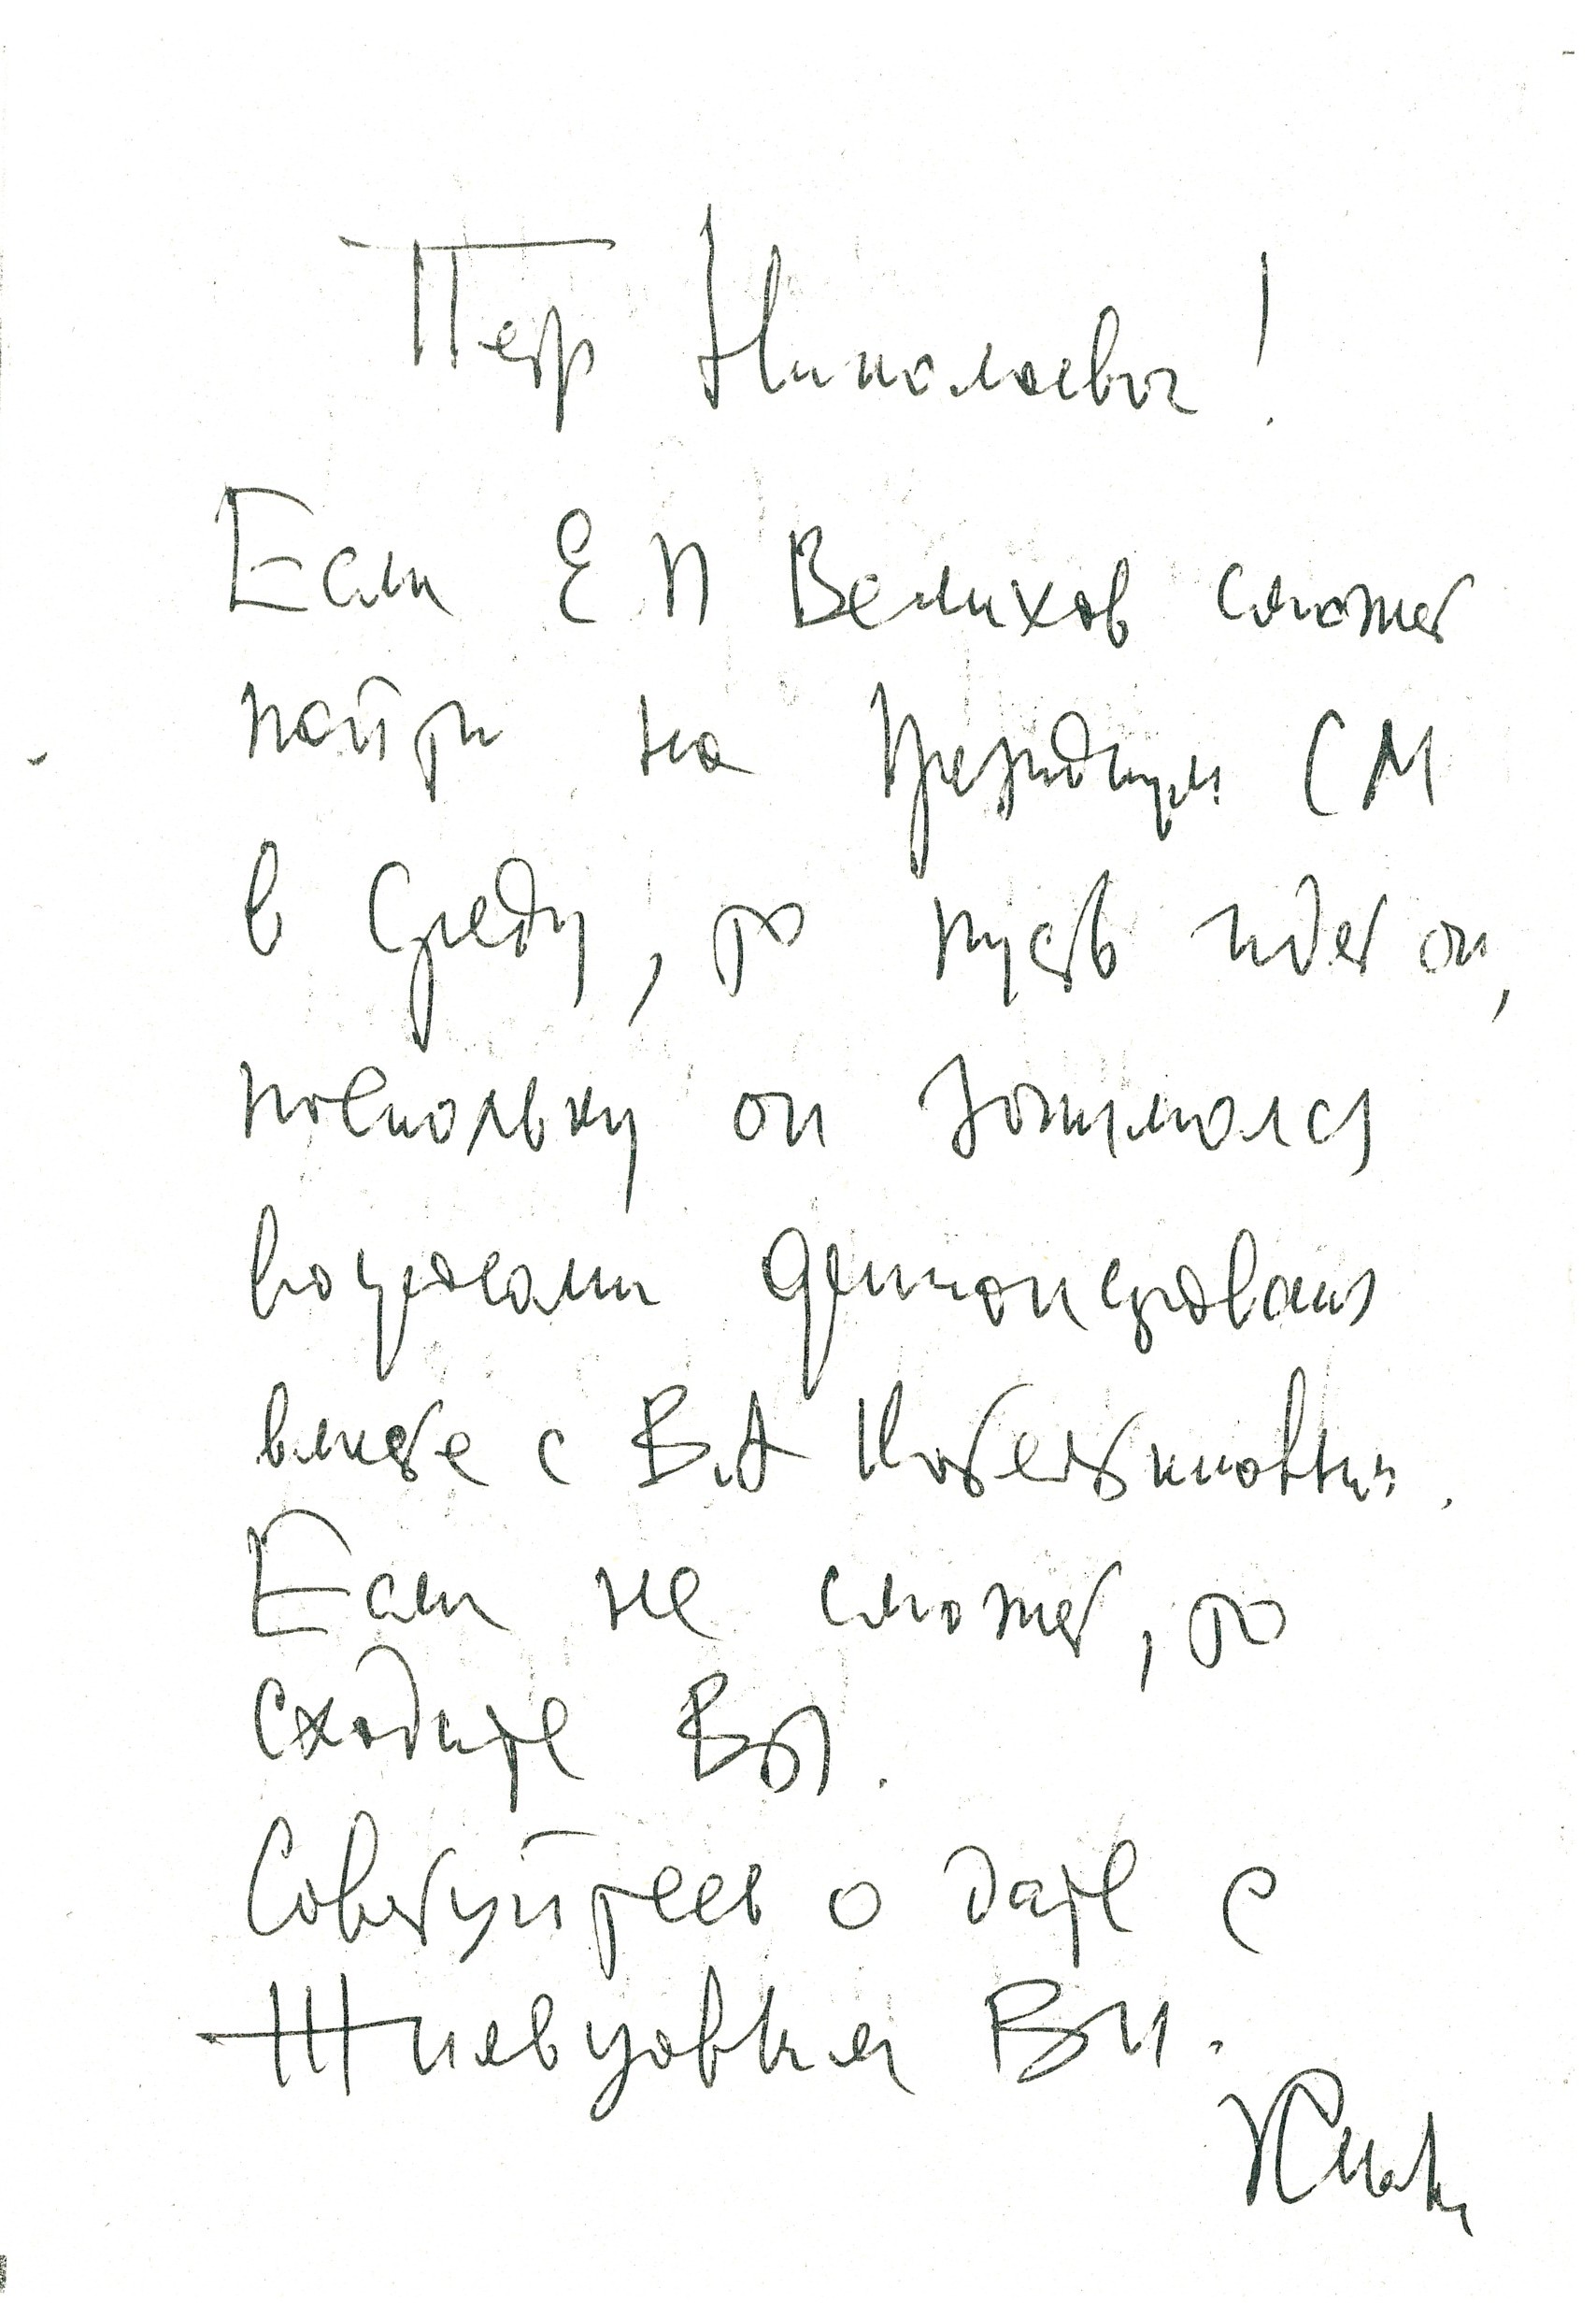 Петр Николаевич!
Если Е П Велихов сможет
пойти на президиум СМ
в среду, то пусть идет он,
поскольку он занимался
вопросами финансирования
вместе с В.А
Если не сможет, то
сходите Вы.
Советуйтесь о дате с
В И.